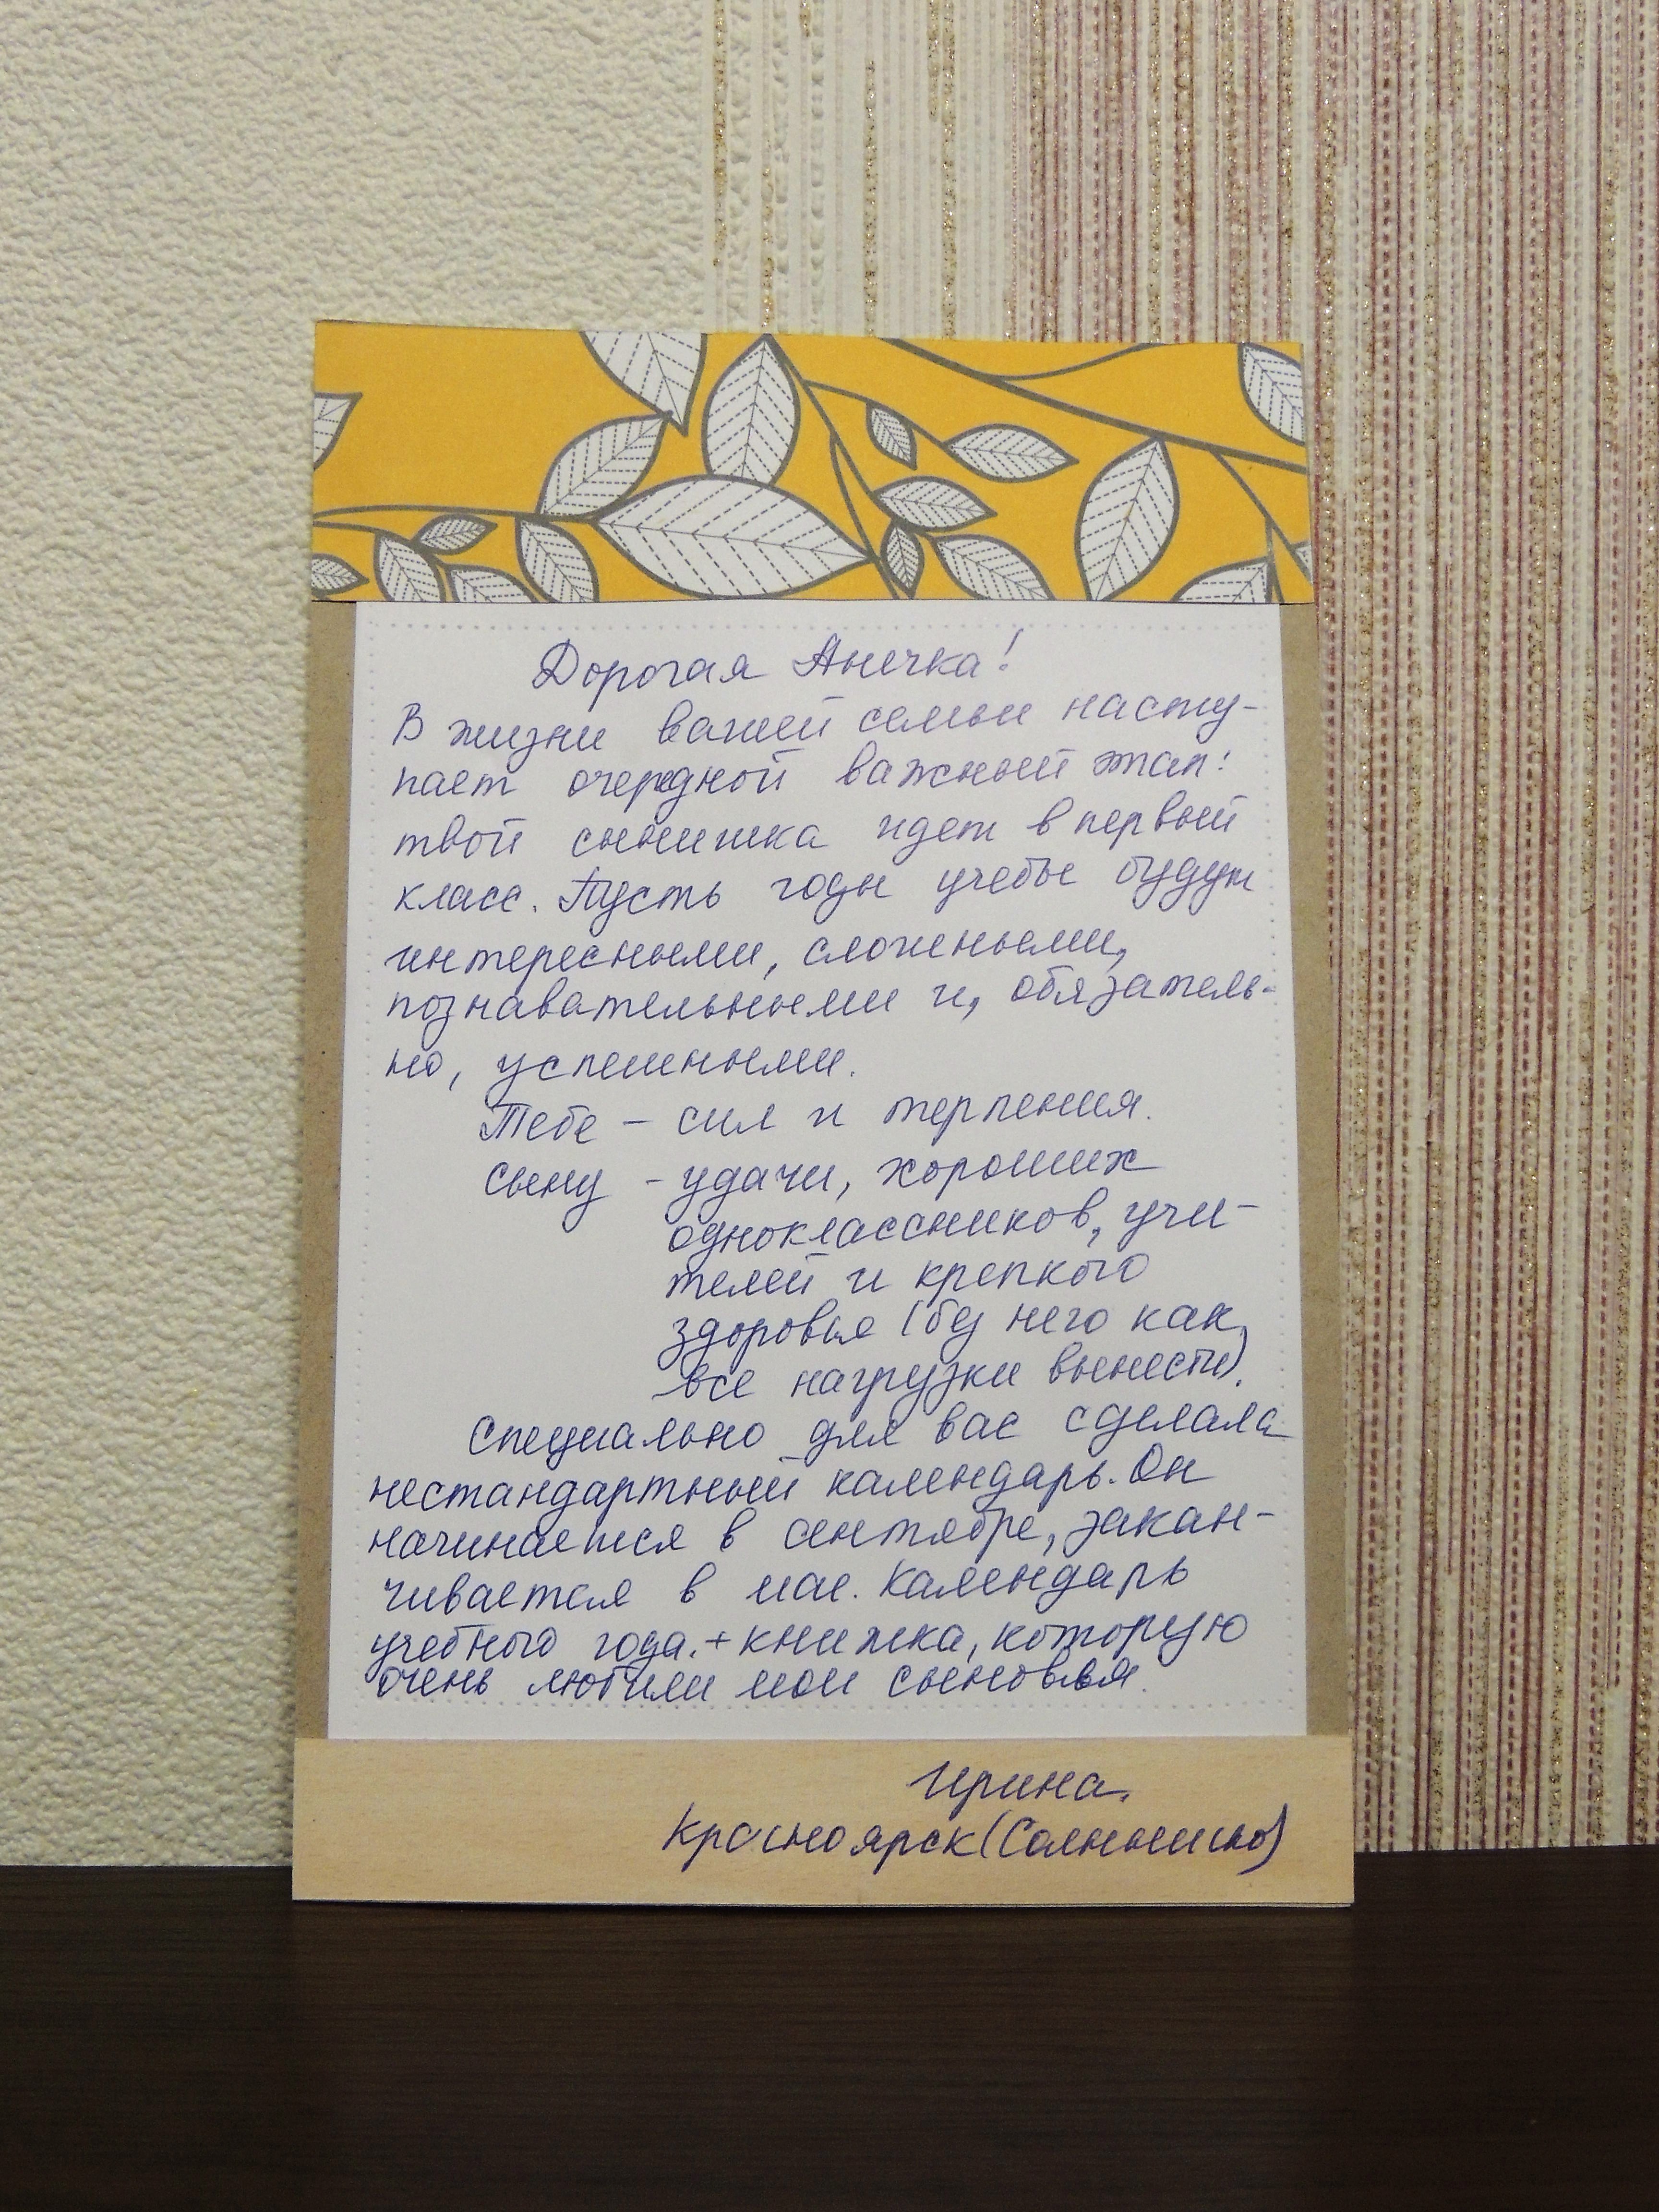 Дорогая Анечка!
В жизни вашей семьи насту-
пает очередной важный этап:
твой сынишка идет в первый
класс. Пусть годы учебы будут
интересными, сложными,
познавательными и, обязатель-
но, успешными.
Тебе - сил и терпения.
Сыну - удачи, хороших
одноклассников, учи-
телей и крепкого
здоровья (без него как
все нагрузки вынести).
Специально для вас сделала
нестандартный календарь. Он
начинается в сентябре, закан-
чивается в мае. Календарь
учебного года. + книжка, которую
очень любили мои сыновья.
Ирина.
Красноярск (Солнышко)